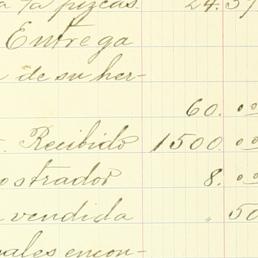 pizcas 24.37
Entrega
de su her-
60. 00
Recibido 1500. 00
ostrador 8. 00
vendida . 50
ales encon-